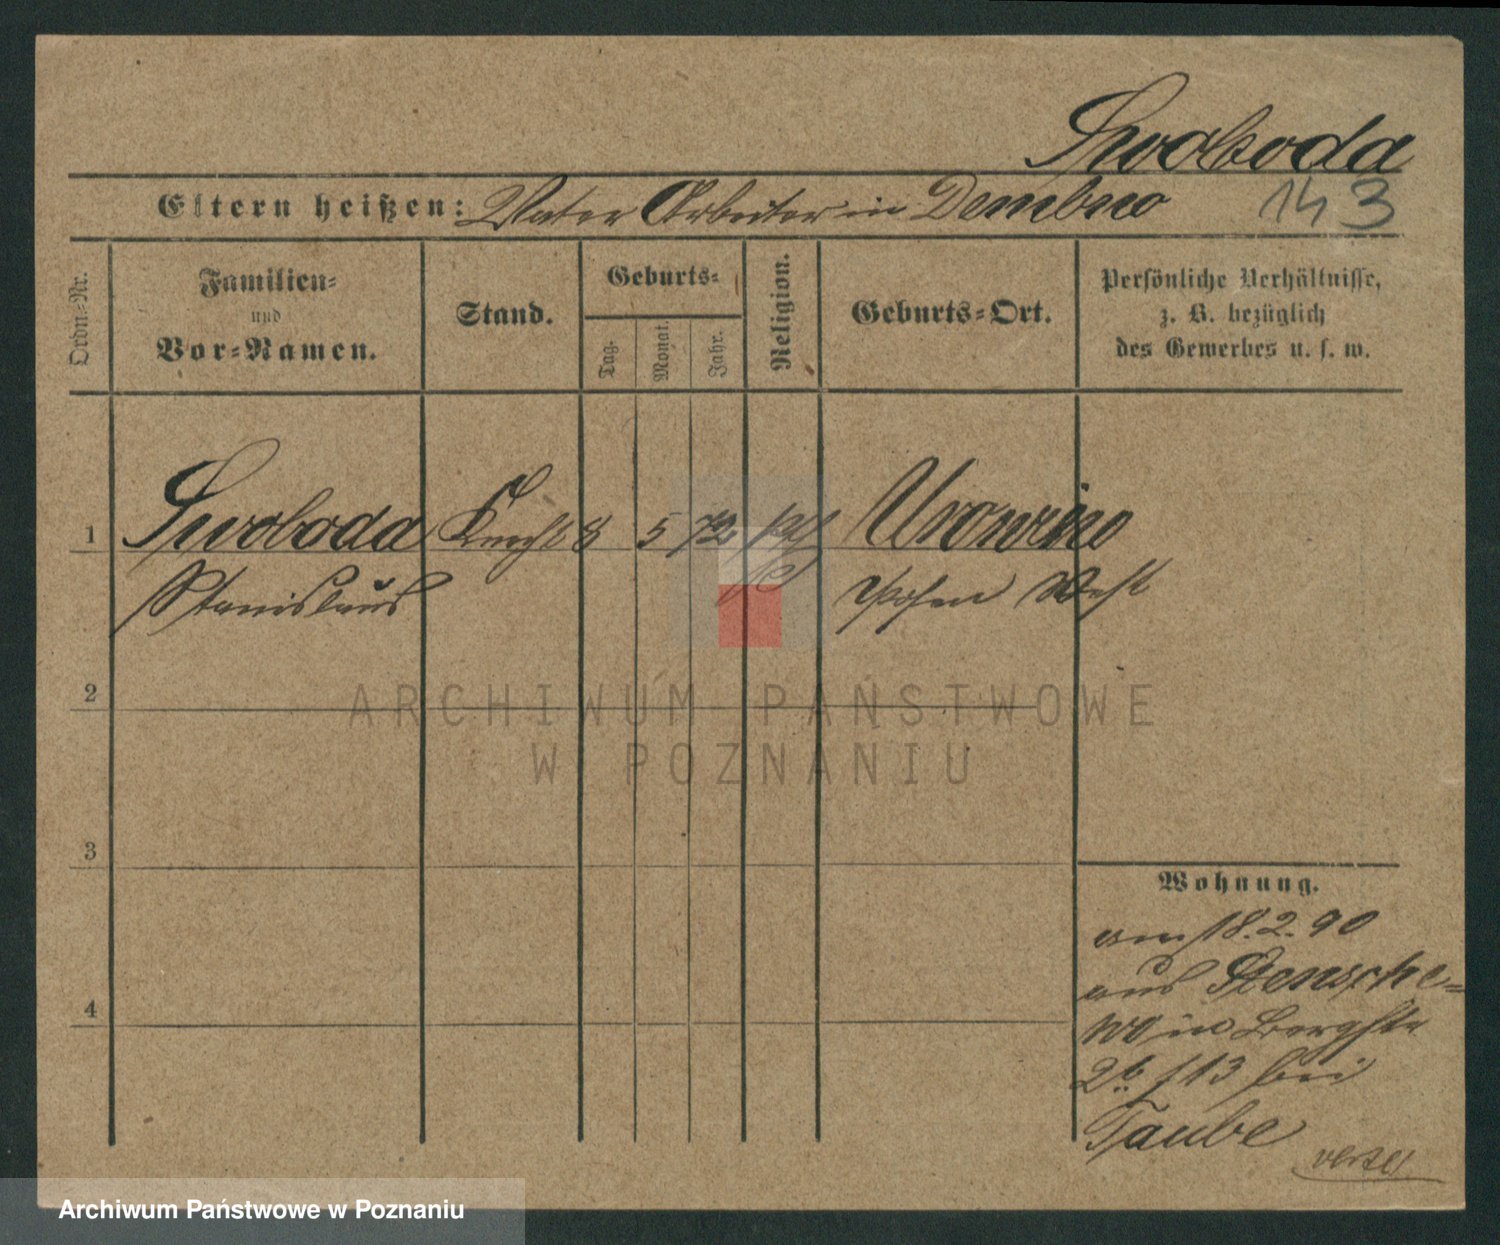 Swoboda
Eltern heißen: Vater Arbeiter in Dembno 143
Ordn.-Nr.
Familien-
und
Vor-Namen.
Stand.
Geburts-
Tag.
Monat.
Jahr.
Religion.
Geburts-Ort.
Persönliche Verhältnisse,
z. B. bezüglich
des Gewerbes u. s. w.
1 Swoboda Knecht 8 5 72
Stanislaus Posen West
2
3
4
ARCHIWUM PAŃSTWOWE
W POZNANIU
Wohnung.
am 18.2.90
aus Stensche-
wo in Bergstr
2b 13 bei
Taube
Archiwum Państwowe w Poznaniu